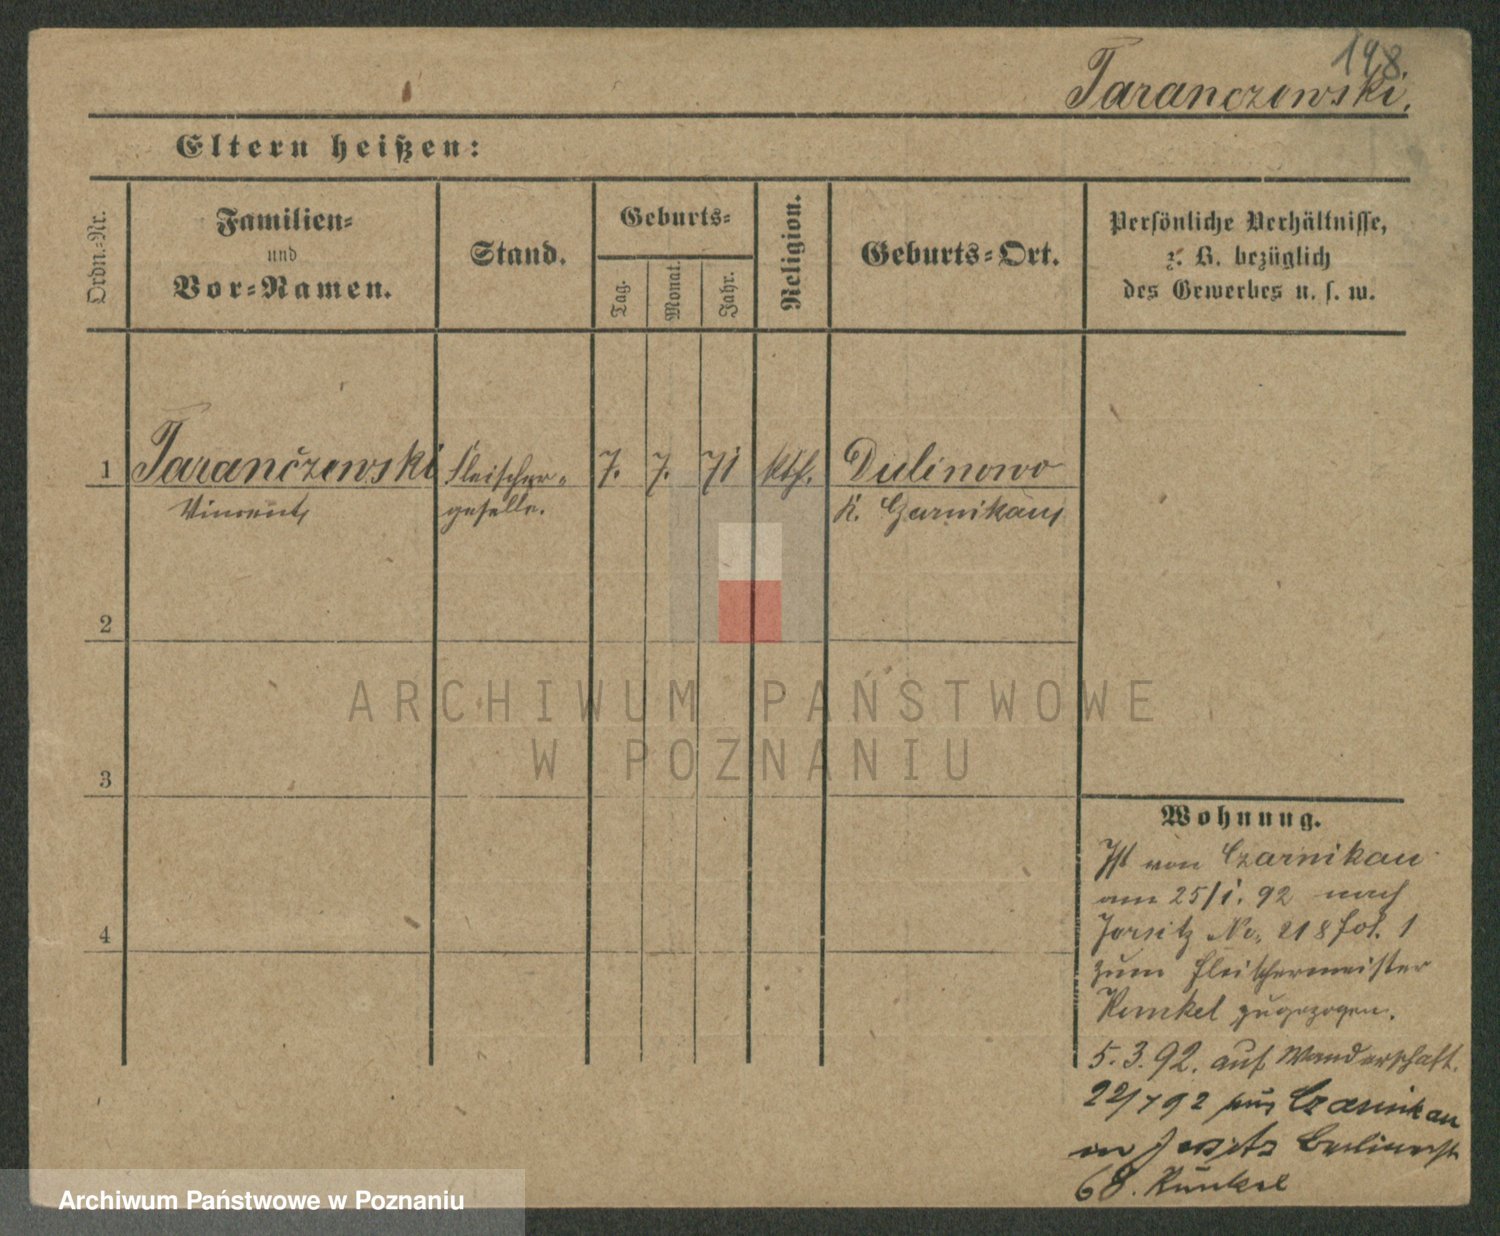 198.
Taranczewski.
Eltern heißen:
Ordn.-Nr.
Familien-
und
Vor-Namen.
Stand.
Geburts-
Tag.
Monat.
Jahr.
Religion.
Geburts-Ort.
Persönliche Verhältnisse,
z. B. bezüglich
des Gewerbes u. s. w.
1 Taranczewski Fleischer- 7. 7. 71 kth. Dulinowo
Vincent, geselle. K. Czarnikau
2
3
4
Wohnung.
Ist von Czarnikau
am 25/1. 92 nach
Jersitz No. 218 fol. 1
zum Fleischermeister
Kunkel zugezogen.
5. 3. 92. auf Wanderschaft.
22/7 92 aus Czarnikau
in Jersitz Berlinerstr
68. Kunkel
ARCHIWUM PAŃSTWOWE
W POZNANIU
Archiwum Państwowe w Poznaniu